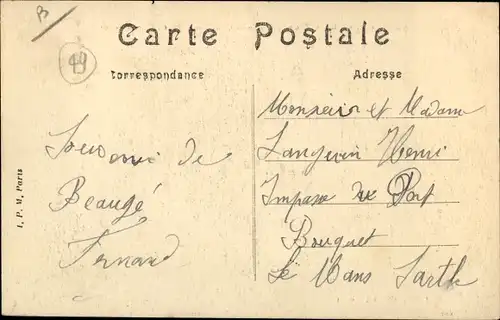 B
49
Carte Postale
Correspondance
Adresse
Souvenir de
Beaugé
Fernand
Monsieur et Madame
Langevin Henri
Impasse du Port
Bouquet
Le Mans Sarthe
I. P. M. Paris